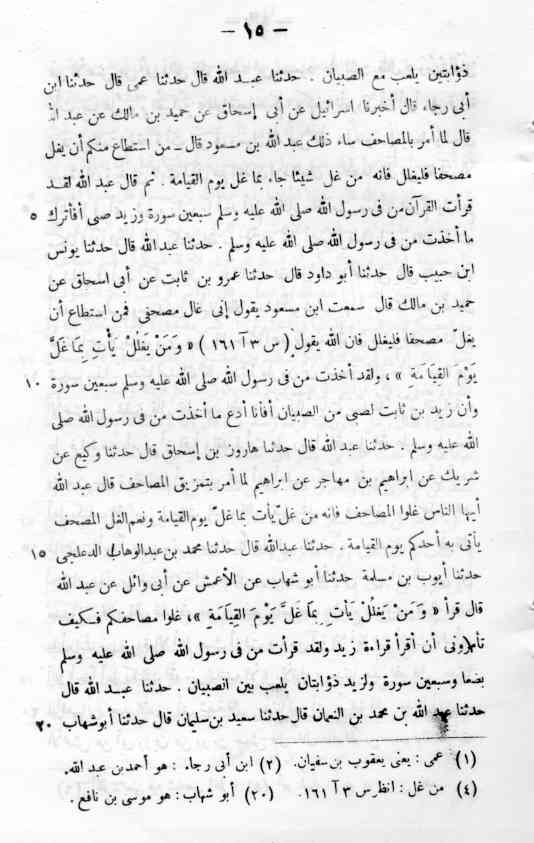 — ١٥ —
ذؤابتين يلعب مع الصبيان . حدثنا عبد الله قال حدثنا عمى قال حدثنا ابن
أبى رجاء قال أخبرنا اسرائيل عن أبى إسحاق عن حميد بن مالك عن عبد الله
قال لما أمر بالمصاحف ساء ذلك عبد الله بن مسعود قال ـ من استطاع منكم أن يغل
مصحفا فليغلل فانه من غل شيئا جاء بما غل يوم القيامة . ثم قال عبد الله لقد
قرأت القرآن من فى رسول الله صلى الله عليه وسلم سبعين سورة وزيد صبى أفأترك ٥
ما أخذت من فى رسول الله صلى الله عليه وسلم . حدثنا عبد الله قال حدثنا يونس
ابن حبيب قال حدثنا أبو داود قال حدثنا عمرو بن ثابت عن أبى اسحاق عن
حميد بن مالك قال سمعت ابن مسعود يقول إنى غال مصحفى فمن استطاع أن
يغلّ مصحفا فليغلل فان الله يقول (س ٣ آ ١٦١) « وَمَنْ يَغْلُلْ يَأْتِ بِمَا غَلَّ
يَوْمَ القِيَامَةِ » ، ولقد أخذت من فى رسول الله صلى الله عليه وسلم سبعين سورة ١٠
وأن زيد بن ثابت لصبى من الصبيان أفأنا أدع ما أخذت من فى رسول الله صلى
الله عليه وسلم . حدثنا عبد الله قال حدثنا هارون بن إسحاق قال حدثنا وكيع عن
شريك عن ابراهيم بن مهاجر عن ابراهيم لما أمر بتمزيق المصاحف قال عبد الله
أيها الناس غلوا المصاحف فانه من غلّ يأت بما غلّ يوم القيامة ونعم الغل المصحف
يأتى به أحدكم يوم القيامة . حدثنا عبد الله قال حدثنا محمد بن عبد الوهاب الدعلجى ١٥
حدثنا أيوب بن مسلمة حدثنا أبو شهاب عن الأعمش عن أبى وائل عن عبد الله
قال قرأ « وَمَنْ يَغْلُلْ يَأْتِ بِمَا غَلَّ يَوْمَ القِيَامَةِ » ، غلوا مصاحفكم فكيف
تأمرونى أن أقرأ قراءة زيد ولقد قرأت من فى رسول الله صلى الله عليه وسلم
بضعا وسبعين سورة ولزيد ذؤابتان يلعب بين الصبيان . حدثنا عبد الله قال
حدثنا عبد الله بن محمد بن النعمان قال حدثنا سعيد بن سليمان قال حدثنا أبو شهاب ٢٠
(١) عمى : يعنى يعقوب بن سفيان. (٢) ابن أبى رجاء : هو أحمد بن عبد الله.
(٤) من غل : انظر س ٣ آ ١٦١. (٢٠) أبو شهاب : هو موسى بن نافع .